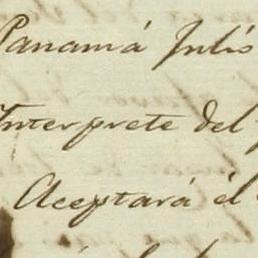 Panamá Julio
Interprete del
Aceptará él